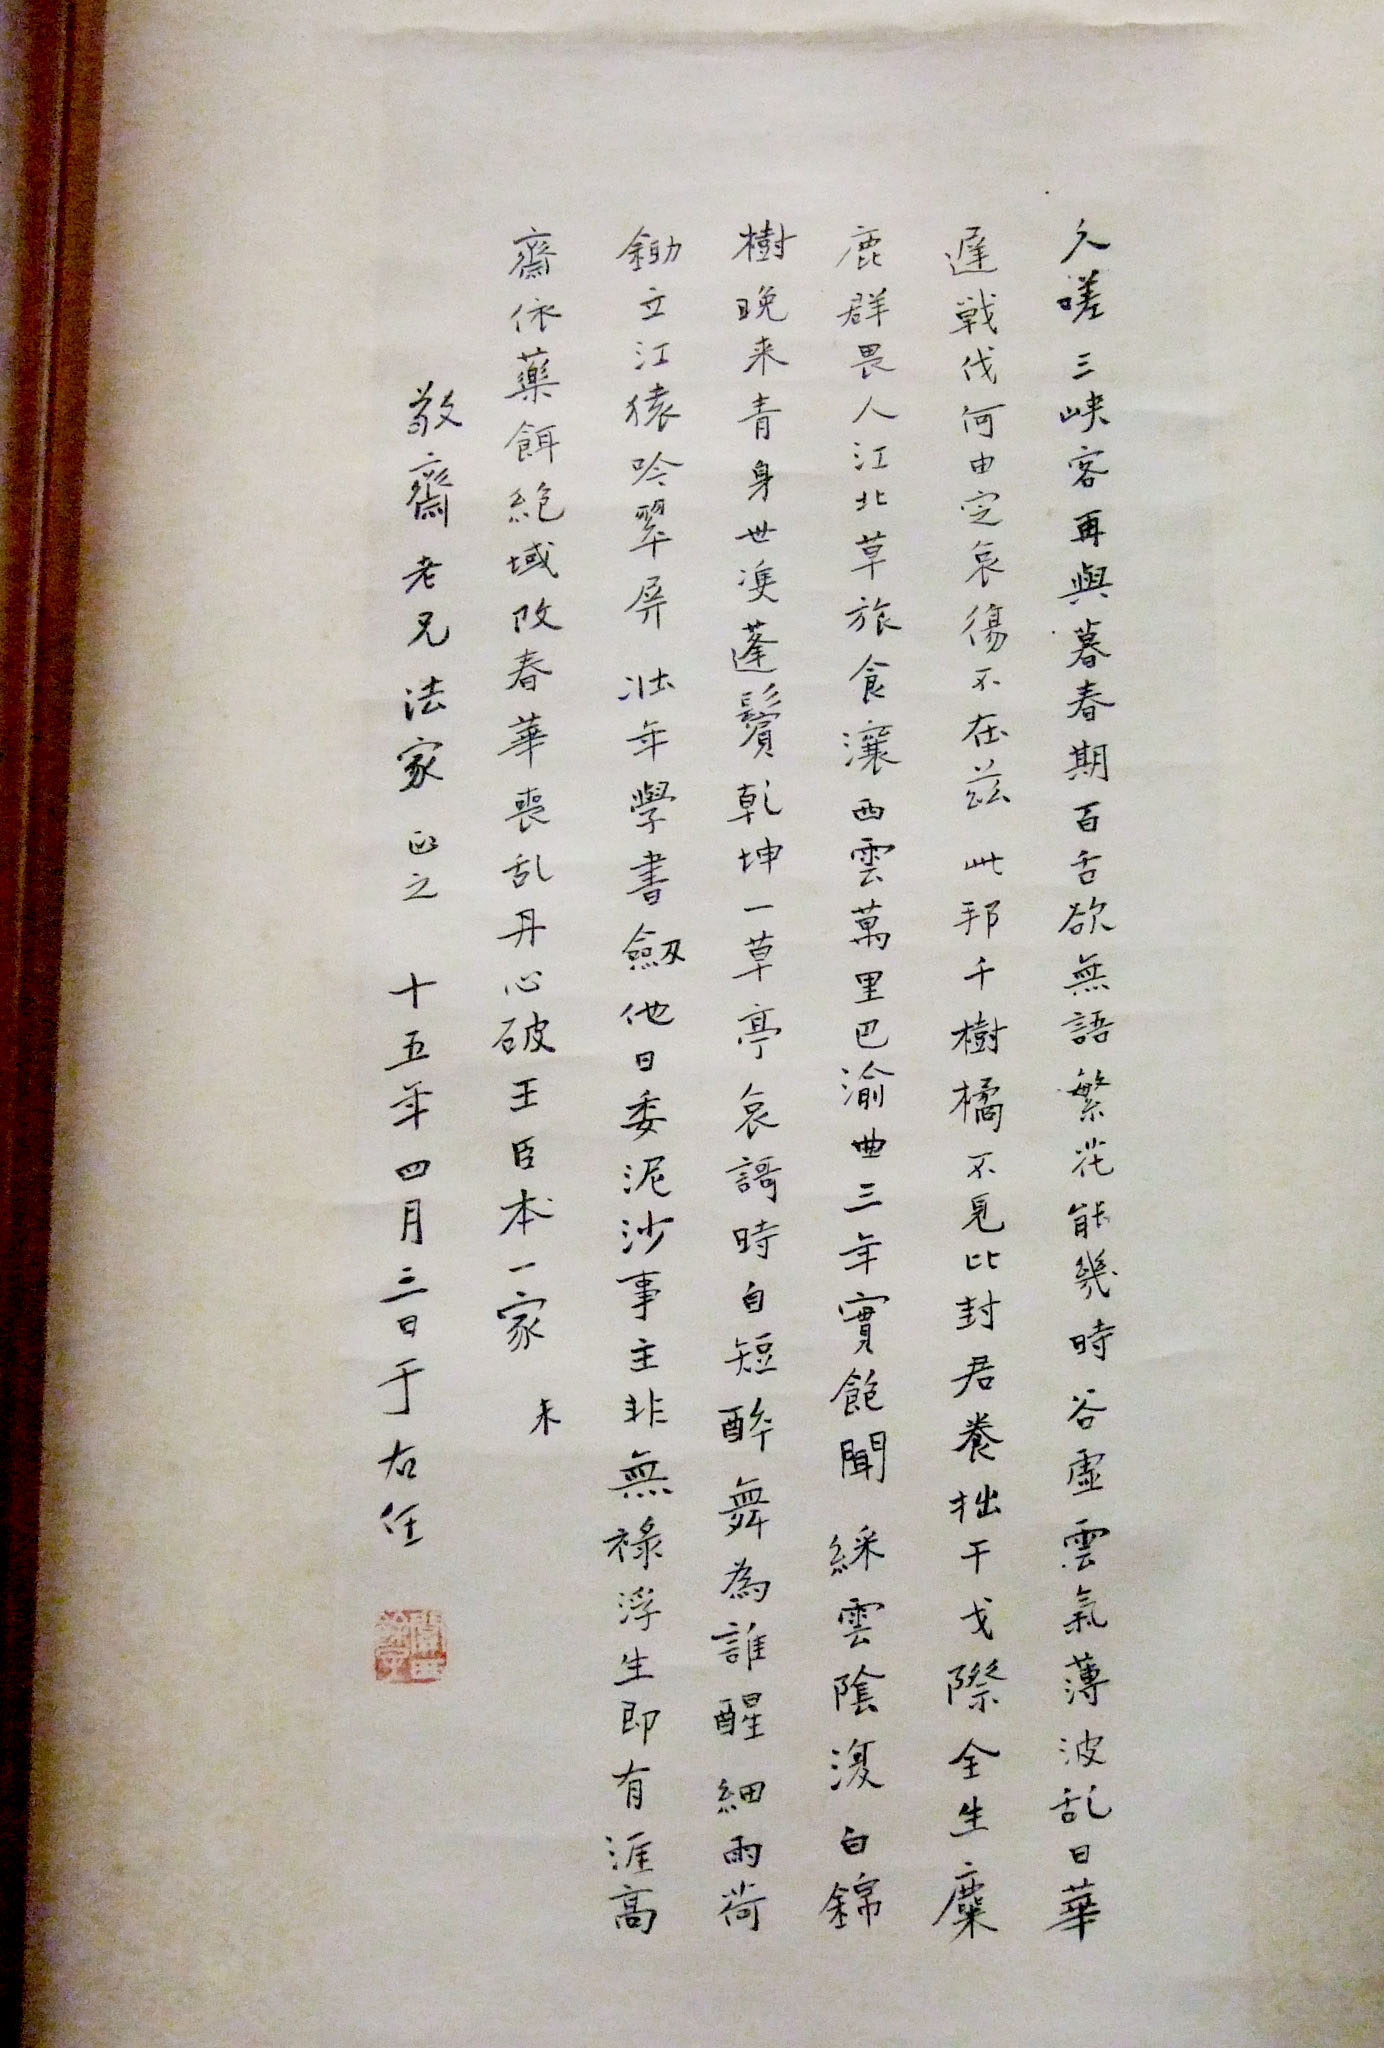 久嗟三峽客再與暮春期百舌欲無語繁花能幾時谷虛雲氣薄波乱日華
遲戰伐何由定哀傷不在茲 此邦千樹橘不見比封君養拙干戈際全生麋
鹿群畏人江北草旅食瀼西雲萬里巴渝曲三年實飽聞 綵雲陰復白錦
樹晚来青身世雙蓬鬢乾坤一草亭哀謌時自短醉舞為誰醒細雨荷
鋤立江猿吟翠屏 壯年學書劔他日委泥沙事主非無祿浮生即有涯高
齋依藥餌絕域改春華喪乱丹心破王臣未一家
本
敬齋老兄法家 正之 十五年四月三日于右任